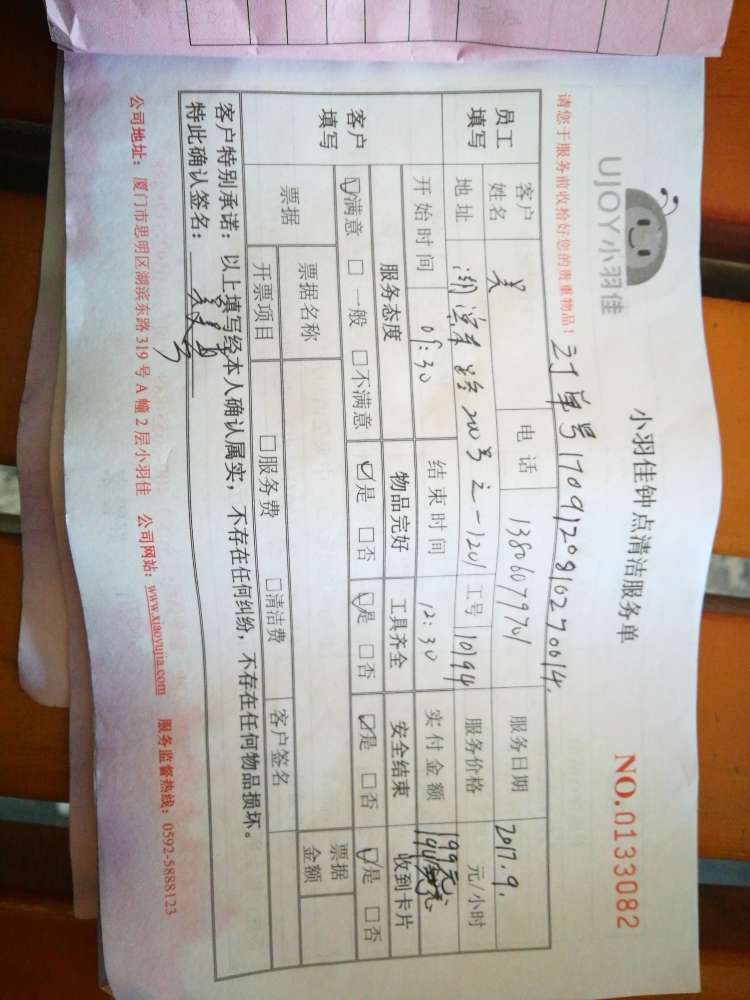 UJOY小羽佳
小羽佳钟点清洁服务单
NO.0133082
请您于服务前收拾好您的贵重物品！
订单号1709120810270014.
员工填写
客户姓名 吴 电话 13806079701 服务日期 2017.9.
地址 湖滨东路200号之一1201 工号 10194 服务价格 元/小时
开始时间 09:30 结束时间 12:30 实付金额 199元
客户填写
服务态度 物品完好 工具齐全 安全结束 收到卡片
☑满意 □一般 □不满意 ☑是 □否 ☑是 □否 ☑是 □否 ☑是 □否
票据 票据名称 票据金额
开票项目 □服务费 □清洁费 客户签名
客户特别承诺：以上填写经本人确认属实，不存在任何纠纷，不存在任何物品损坏。
特此确认签名：
公司地址：厦门市思明区湖滨东路319号A幢2层小羽佳 公司网站：www.xiaoyujia.com 服务监督热线：0592-5888123